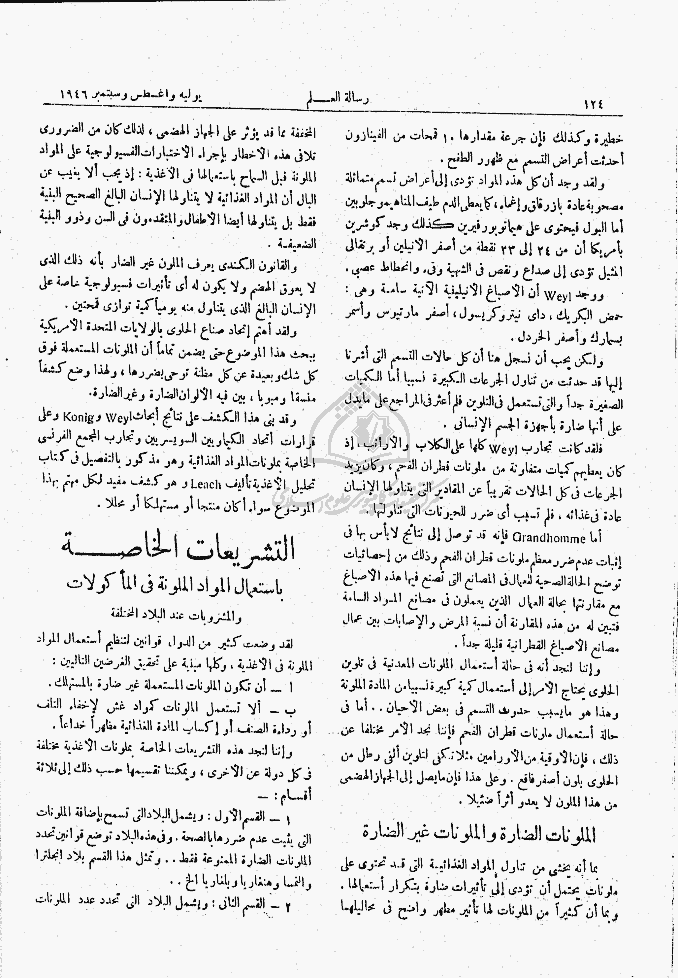 ١٢٤
رسالة العـــلم
يوليه واغسطس وسبتمبر ١٩٤٦
خطيرة وكذلك فإن جرعة مقدارها ١٠ قمحات من الفينازون
أحدثت أعراض التسمم مع ظهور الطفح .
ولقد وجد أن كل هذه المواد تؤدى إلى أعراض تسمم متماثلة
مصحوبة عادة بازرقاق وإغماء، كما يعطى الدم طيف المتاهيموجلوبين
أما البول فيحتوى على هيماتوبورفيرين كذلك وجد كوشرين
بأمريكا أن من ٢٤ إلى ٢٣ نقطة من أصفر الانيلين أو برتقالى
المثيل تؤدى إلى صداع ونقص فى الشهية وقىء وانحطاط عصبى .
ووجد Weyl أن الأصباغ الانيلينية الآتية سامة وهى :
حمض البكريك ، داى نيتروكريسول، أصفر مارتيوس وأسمر
بسمارك وأصفر الخردل .
ولكن يجب أن نسجل هنا أن كل حالات التسمم التى أشرنا
إليها قد حدثت من تناول الجرعات الكبيرة نسبيا أما الكميات
الصغيرة جداً والتى تستعمل فى التلوين فلم أعثر فى المراجع على ما يدل
على أنها ضارة بأجهزة الجسم الإنسانى .
فلقد كانت تجارب Weyl كلها على الكلاب والأرانب ، إذ
كان يعطيهم كميات متفاوتة من ملونات قطران الفحم ، وكان يزيد
الجرعات فى كل الحالات تقريباً عن المقادير التى يتناولها الإنسان
عادة فى غذائه ، فلم تسبب أى ضرر للحيوانات التى تناولتها .
أما Grandhomme فإنه قد توصل إلى نتائج لا بأس بها فى
إثبات عدم ضرر معظم ملونات قطران الفحم وذلك من إحصائيات
توضح الحالة الصحية للعمال فى المصانع التى تصنع فيها هذه الأصباغ
مع مقارنتها بحالة العمال الذين يعملون فى مصانع المواد السامة
فتبين له من هذه المقارنة أن نسبة المرض والإصابات بين عمال
مصانع الأصباغ القطرانية قليلة جداً .
وإننا لنجد أنه فى حالة أستعمال الملونات المعدنية فى تلوين
الحلوى يحتاج الأمر إلى أستعمال كمية كبيرة نسبيا من المادة الملونة
وهذا هو ما يسبب حدوث التسمم فى بعض الأحيان .. أما فى
حالة أستعمال ملونات قطران الفحم فإننا نجد الأمر مختلفا عن
ذلك ، فإن الأوقية من الأورامين مثلا تكفى لتلوين ألفى رطل من
الحلوى بلون أصفر فاقع . وعلى هذا فإن ما يصل إلى الجهاز الهضمى
من هذا الملون لا يعدو أثراً ضئيلا .
الملونات الضارة والملونات غير الضارة
بما أنه يخشى من تناول المواد الغذائية التى قد تحتوى على
ملونات يحتمل أن تؤدى إلى تأثيرات ضارة بتكرار أستعمالها .
وبما أن كثيراً من الملونات لها تأثير مطهر واضح فى محاليلها
المخففة بما قد يؤثر على الجهاز الهضمى ، لذلك كان من الضرورى
تلافى هذه الأخطار بإجراء الأختبارات الفسيولوجية على المواد
الملونة قبل السماح باستعمالها فى الأغذية : إذ يجب ألا يغيب عن
البال أن المواد الغذائية لا يتناولها الإنسان البالغ الصحيح البنية
فقط بل يتناولها أيضا الأطفال والمتقدمون فى السن وذوو البنية
الضعيفة .
والقانون الكندى يعرف الملون غير الضار بأنه ذلك الذى
لا يعوق الهضم ولا يكون له أى تأثيرات فسيولوجية خاصة على
الإنسان البالغ الذى يتناول منه يومياً كمية توازى قمحتين .
ولقد أهتم إتحاد صناع الحلوى بالولايات المتحدة الأمريكية
ببحث هذا الموضوع حتى يضمن تماماً أن الملونات المستعملة فوق
كل شك وبعيدة عن كل مظنة توحى بضررها ، ولهذا وضع كشفاً
منسقا ومبوبا ، بين فيه الألوان الضارة وغير الضارة.
وقد بنى هذا الكشف على نتائج أبحاث Weyl و Konig وعلى
قرارات أتحاد الكيماويين السويسريين وتجارب المجمع الفرنسى
الخاصة بملونات المواد الغذائية وهو مذكور بالتفصيل فى كتاب
تحليل الأغذية تأليف Leach وهو كشف مفيد لكل مهتم بهذا
الموضوع سواء أكان منتجا أو مستهلكا أو محللا .
التشريعات الخاصـــة
باستعمال المواد الملونة فى المأكولات
والمشروبات عند البلاد المختلفة
لقد وضعت كثير من الدول قوانين لتنظيم أستعمال المواد
الملونة فى الأغذية ، وكلها مبنية على تحقيق الغرضين التاليين :
ا — أن تكون الملونات المستعملة غير ضارة بالمستهلك .
ب — ألا تستعمل الملونات كمواد غش لإخفاء التلف
أو رداءة الصنف أو إكساب المادة الغذائية مظهراً خداعاً .
وإننا لنجد هذه التشريعات الخاصة بملونات الأغذية مختلفة
فى كل دولة عن الأخرى ، ويمكننا تقسيمها حسب ذلك إلى ثلاثة
أقسام : —
١ — القسم الأول : ويشمل البلاد التى تسمح بإضافة الملونات
التى يثبت عدم ضررها بالصحة . وفى هذه البلاد توضع قوانين تحدد
الملونات الضارة الممنوعة فقط .. وتمثل هذا القسم بلاد انجلترا
والنمسا وهنغاريا وبلغاريا الخ ..
٢ — القسم الثانى : ويشمل البلاد التى تحدد عدد الملونات